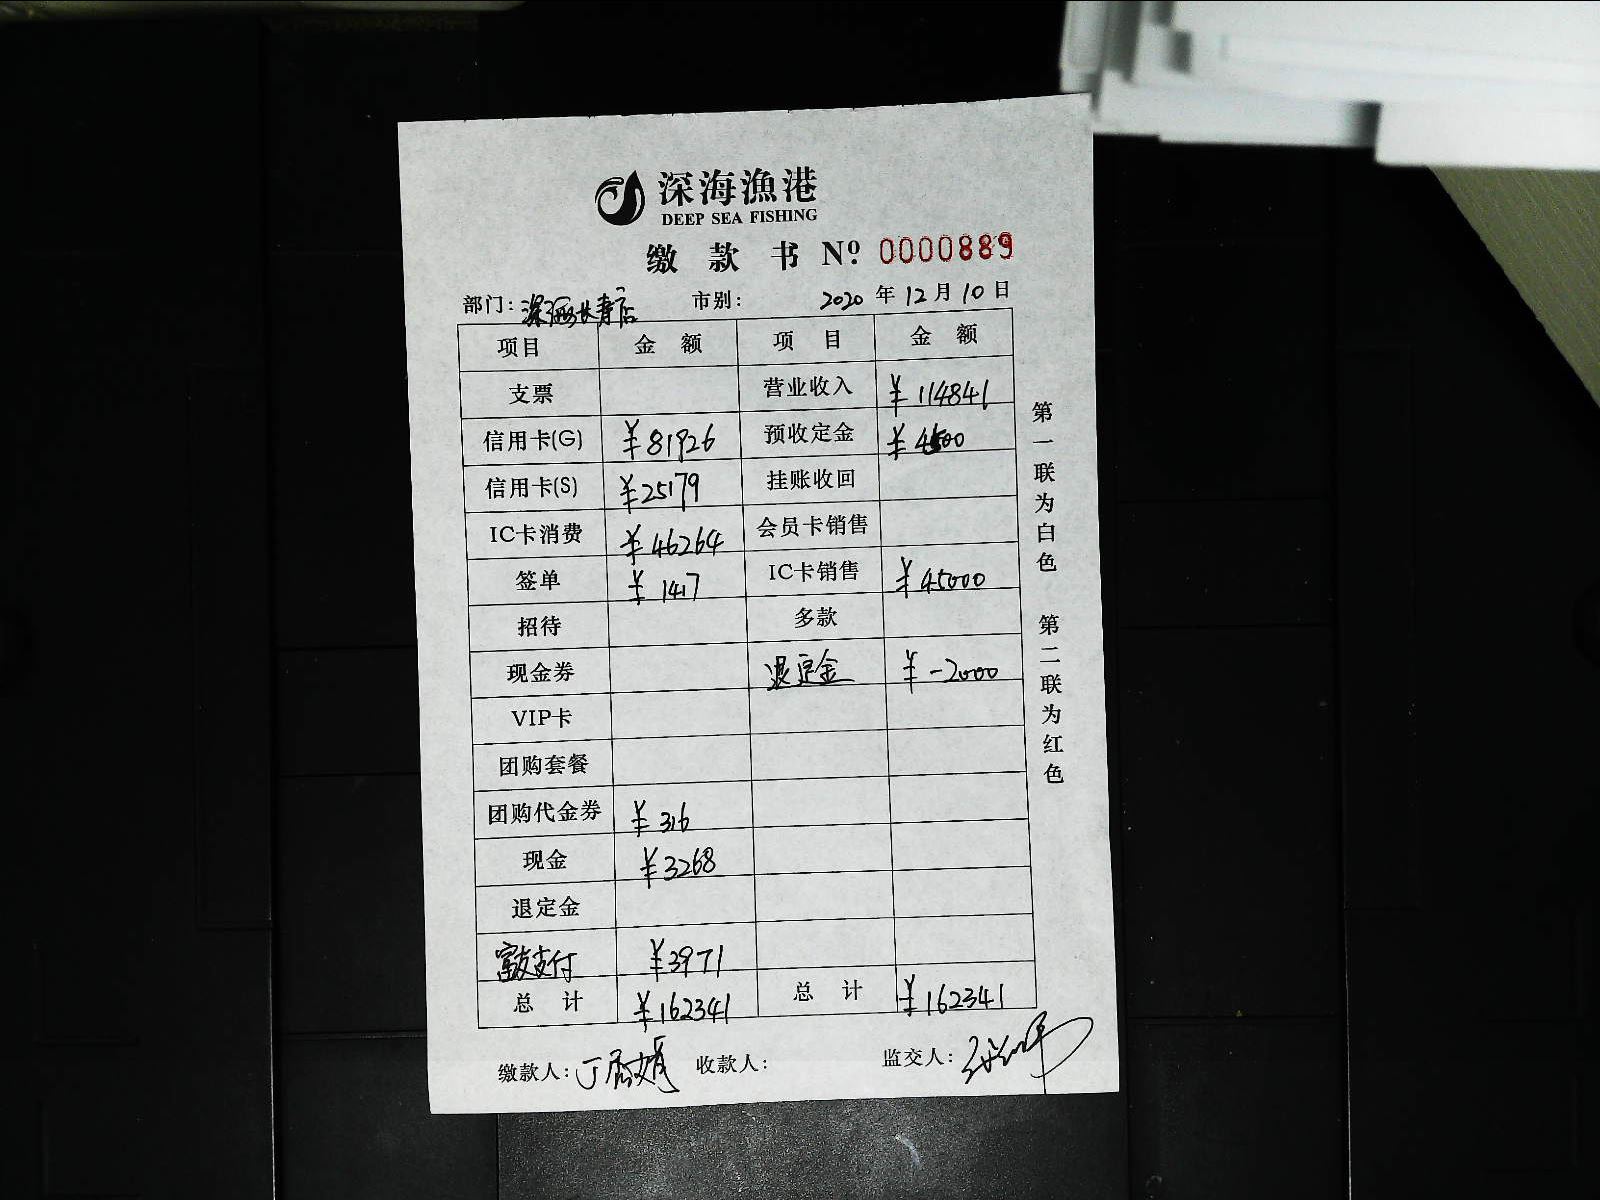 深海漁港
DEEP SEA FISHING
缴 款 书 Nº. 0000889
部门: 深海长寿店 市别: 2020 年 12 月 10 日
项目 金 额 项 目 金 额
支票 营业收入 ¥114841
信用卡(G) ¥81926 预收定金 ¥4500
信用卡(S) ¥25179 挂账收回
IC卡消费 ¥46264 会员卡销售
签单 ¥1417 IC卡销售 ¥45000
招待 多款
现金券 退定金 ¥-2000
VIP卡
团购套餐
团购代金券 ¥316
现金 ¥3268
退定金
富友支付 ¥3971
总 计 ¥162341 总 计 ¥162341
缴款人: 收款人: 监交人:
第一联为白色 第二联为红色